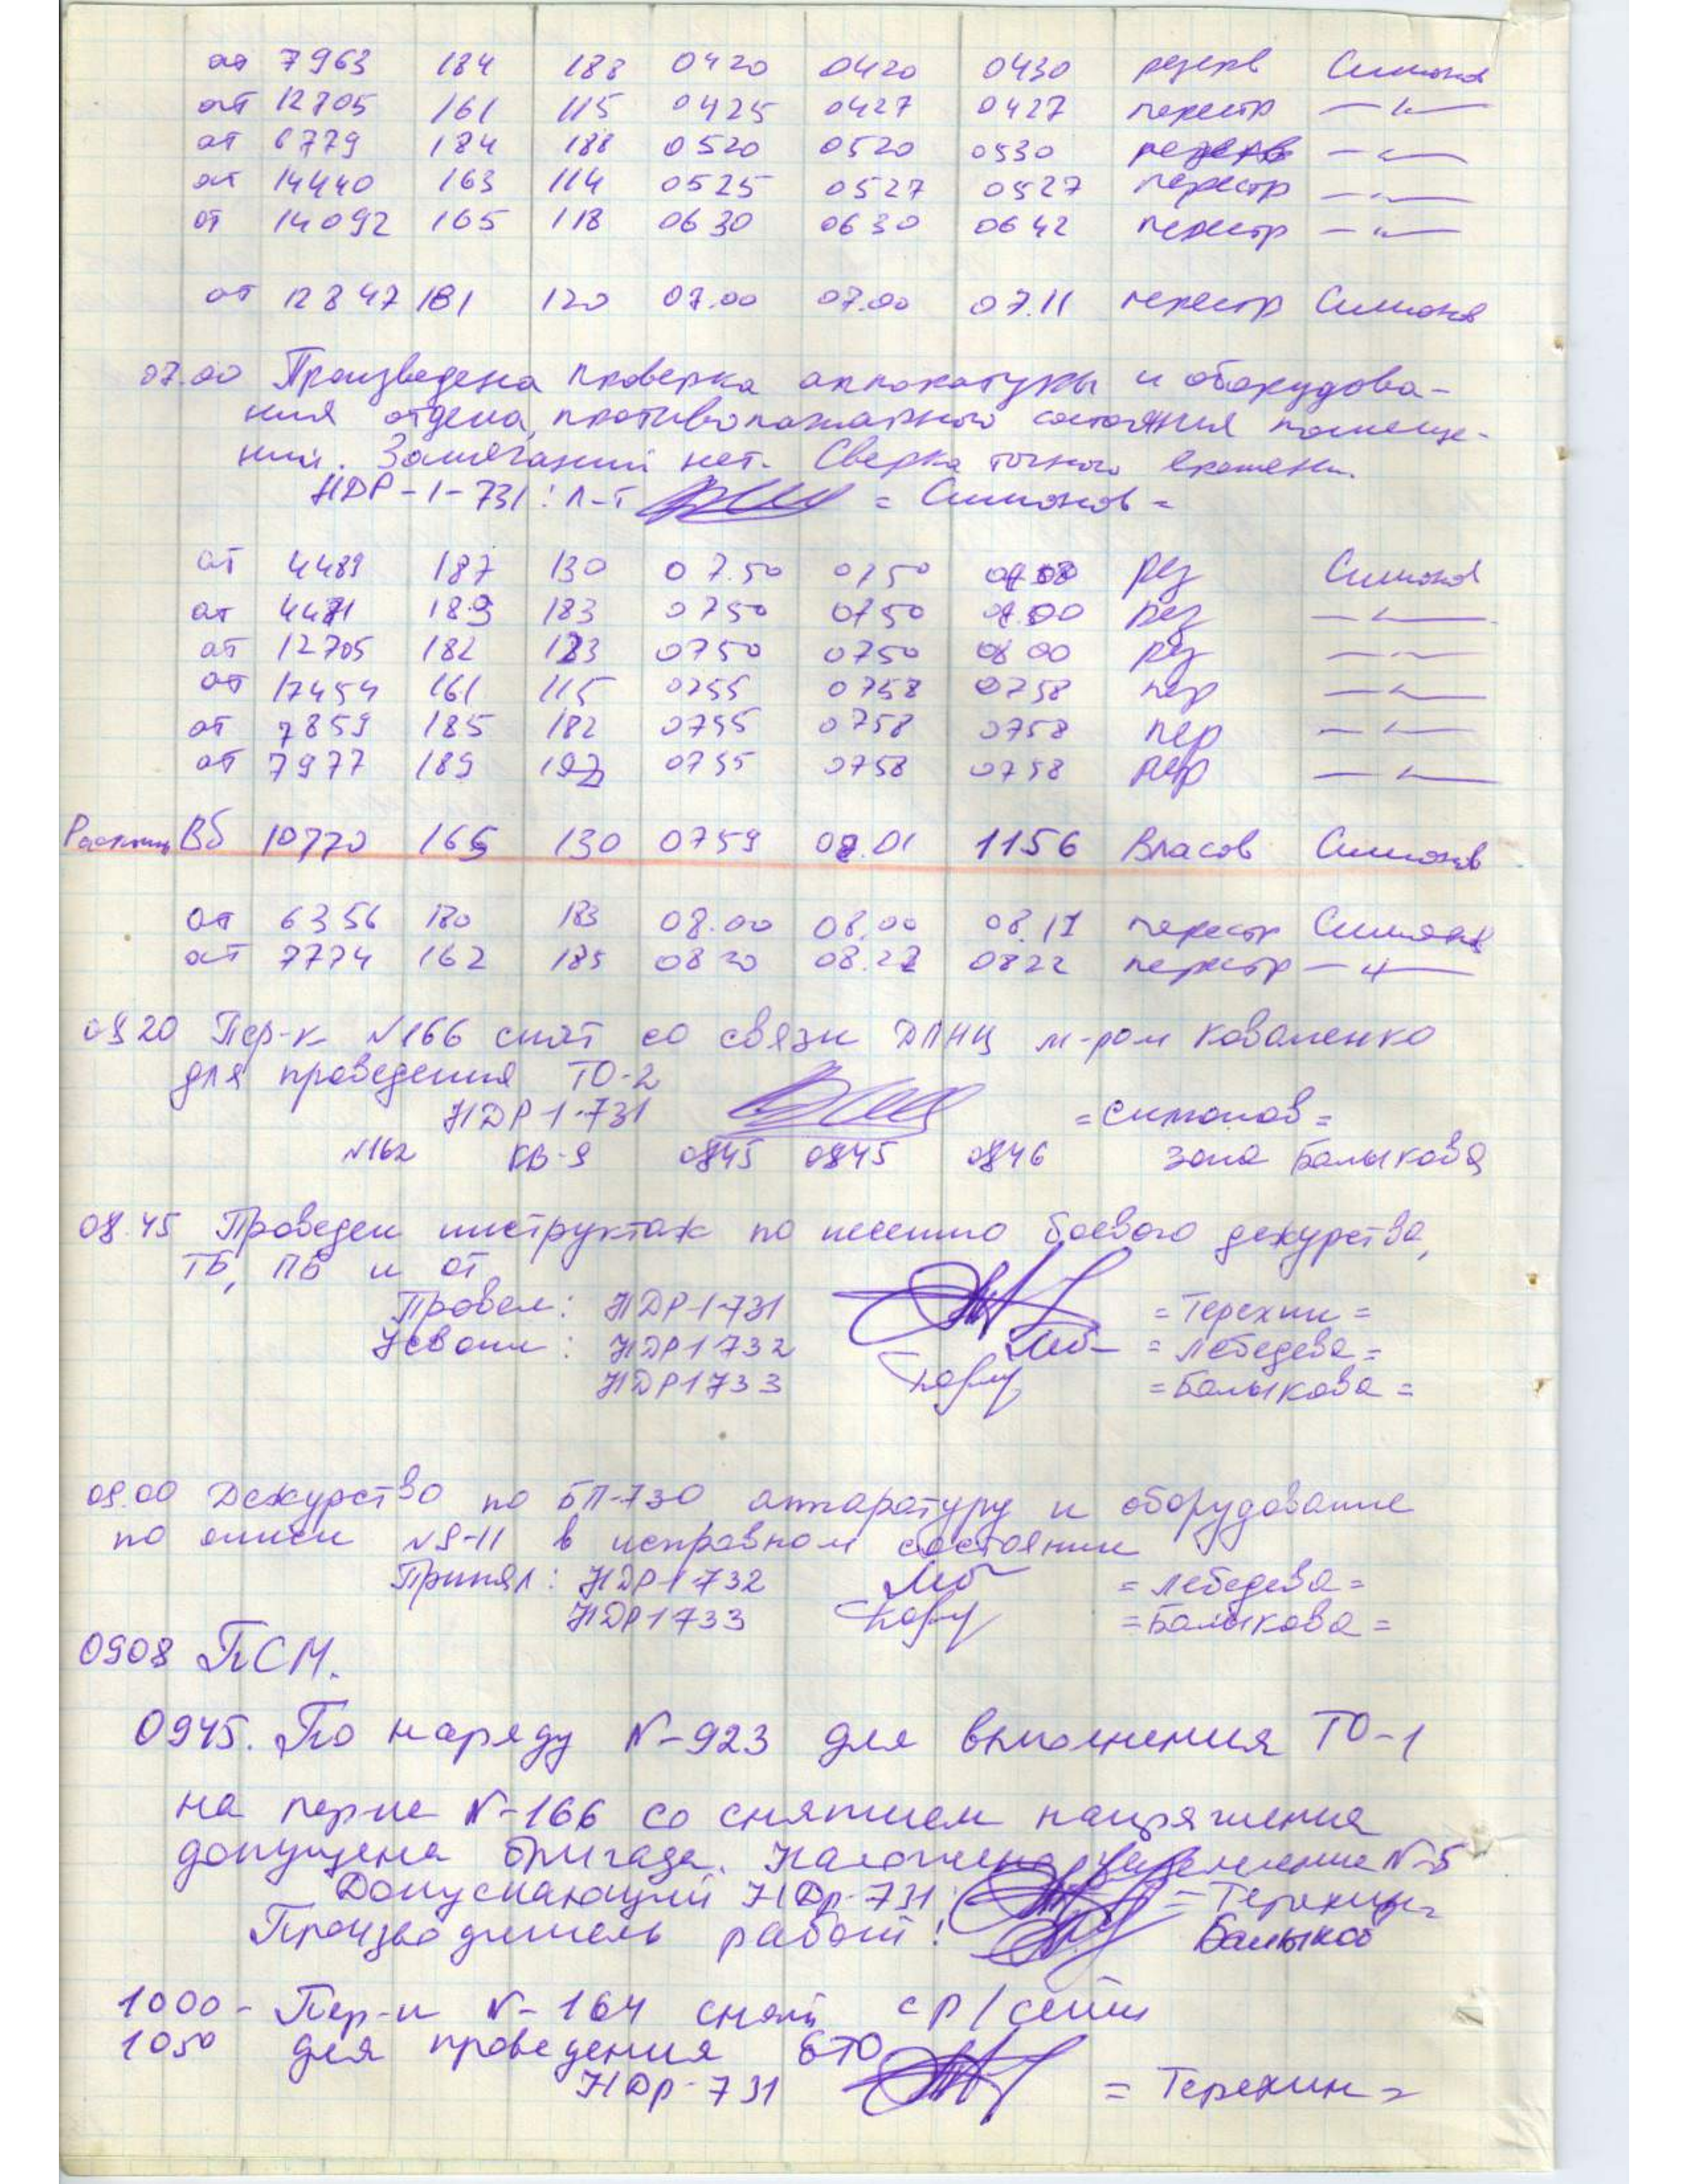 от 7963 184 188 0420 0420 0430 резерв Симонов
от 12705 161 115 0425 0427 0427 перестр —"—
от 6779 184 188 0520 0520 0530 резерв —"—
от 14440 163 114 0525 0527 0527 перестр —"—
от 14092 165 118 0630 0630 0642 перестр —"—
от 12847 181 120 07.00 07.00 07.11 перестр Симонов
07.00 Произведена проверка аппаратуры и оборудова-
ния отдела, противопожарного состояния помеще-
ний. Замечаний нет. Сверка точного времени.
НДР-1-731: л-т = Симонов =
от 4489 187 130 07.50 0750 рез Симонов
от 4471 189 183 0750 0750 рез —"—
от 12705 182 123 0750 0750 08 00 рез —"—
от 17454 161 115 0755 0758 0758 пер —"—
от 7859 185 182 0755 0758 0758 пер —"—
от 7977 189 0755 0758 0758 пер —"—
Вб 10770 165 130 0759 08.01 1156 Власов Симонов
от 6356 180 183 08.00 08.00 08.11 перестр Симонов
от 7774 162 185 0820 08.22 0822 перестр —"—
0820 Пер-к №166 снят со связи ДПНЦ м-ром Коваленко
для проведения ТО-2
НДР 1-731 =Симонов=
№162 КВ-9 0845 0845 0846 зона Балыкова
08.45 Проведен инструктаж по несению боевого дежурства,
ТБ, ПБ и от
Провел: НДР-1-731 = Терехин =
Усвоили: НДР1732 = Лебедева =
НДР1733 = Балыкова =
09.00 Дежурство по БП-730 аппаратуру и оборудование
по описи №9-11 в исправном состоянии
Принял: НДР1-732 = Лебедева =
НДР1733 = Балыкова =
0908 ПСМ.
0945. По наряду №-923 для выполнения ТО-1
на перце №-166 со снятием напряжения
допущена бригада. Наложено заземление №-5
Допускающий НДр-731: = Терехин =
Производитель работ: Балыков
1000- Пер-к №-164 снят с р/сети
1050 для проведения ЕТО
НДр-731 = Терехин =